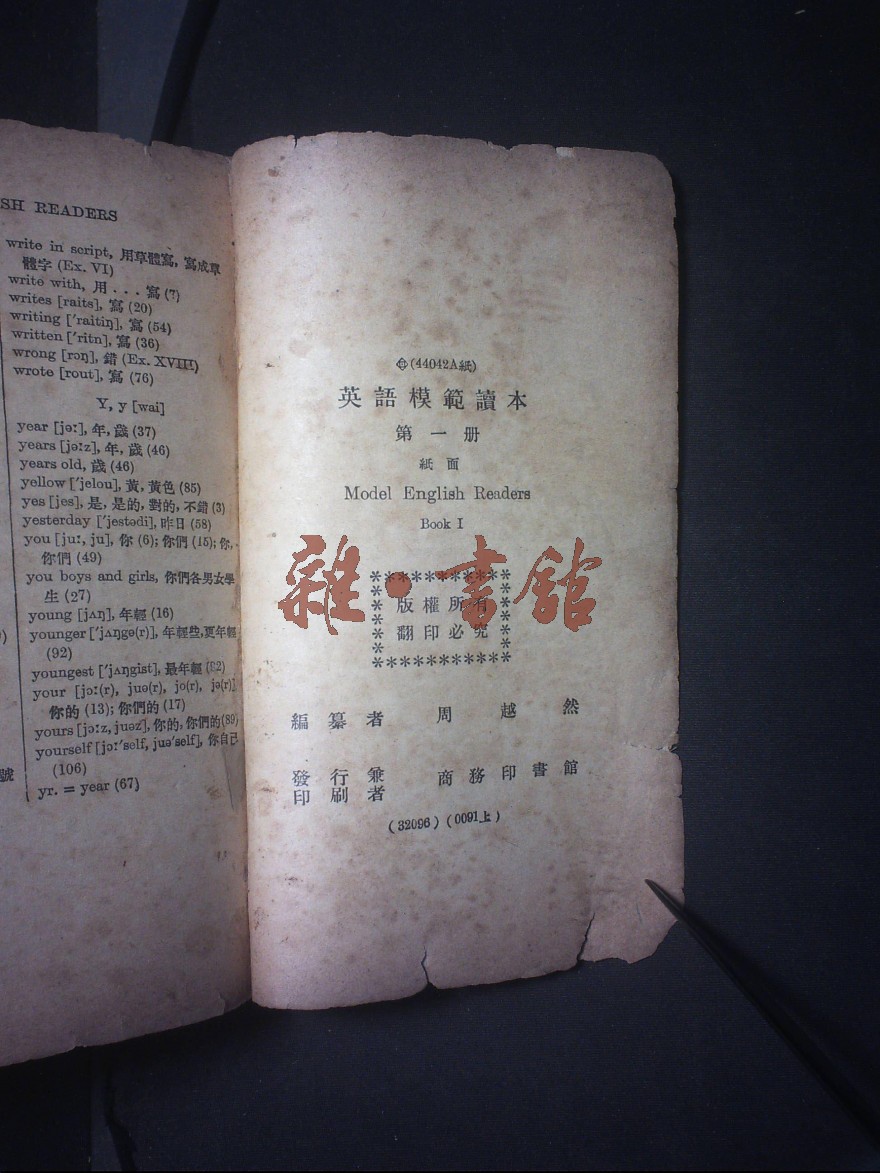 SH READERS
write in script, 用草體寫, 寫成草
體字 (Ex. VI)
write with, 用 . . . 寫 (7)
writes [raits], 寫 (20)
writing ['raitiŋ], 寫 (54)
written ['ritn], 寫 (36)
wrong [rɔŋ], 錯 (Ex. XVIII)
wrote [rout], 寫 (76)
Y, y [wai]
year [jəː], 年, 歲 (37)
years [jəːz], 年, 歲 (46)
years old, 歲 (46)
yellow ['jelou], 黃, 黃色 (85)
yes [jes], 是, 是的, 對的, 不錯 (3)
yesterday ['jestədi], 昨日 (58)
you [juː, ju], 你 (6); 你們 (15); 你,
你們 (49)
you boys and girls, 你們各男女學
生 (27)
young [jʌŋ], 年輕 (16)
younger ['jʌŋgə(r)], 年輕些, 更年輕
(92)
youngest ['jʌŋgist], 最年輕 (82)
your [jɔː(r), juə(r), jo(r), jə(r)]
你的 (13); 你們的 (17)
yours [jɔːz, juəz], 你的, 你們的 (89)
yourself [jɔː'self, juə'self], 你自己
(106)
yr. = year (67)
號
(44042A紙)
英語模範讀本
第一册
紙面
Model English Readers
Book I
雜·書館
版權所有
翻印必究
編纂者 周越然
發行兼
印刷者 商務印書館
(32096) (0091上)